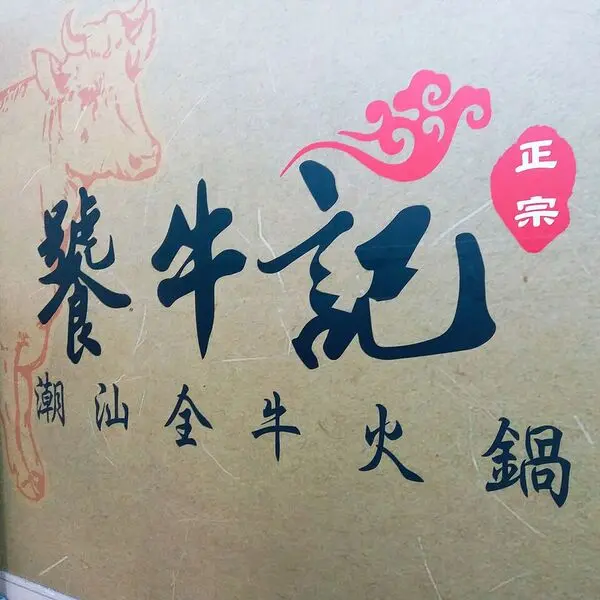 饕牛記
正宗
潮汕全牛火鍋